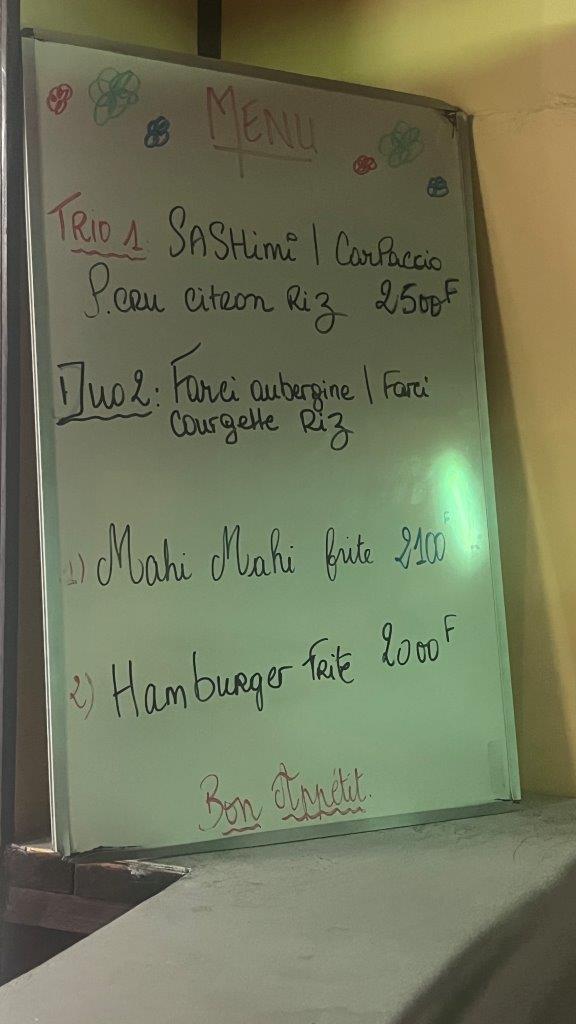 MENU
TRIO 1 SASHimi | CarPaccio
P.CRU citron Riz 2500F
Duo 2: Farci aubergine | Farci
courgette Riz
1) Mahi Mahi frite 2100F
2) Hamburger Frite 2000F
Bon Appétit.